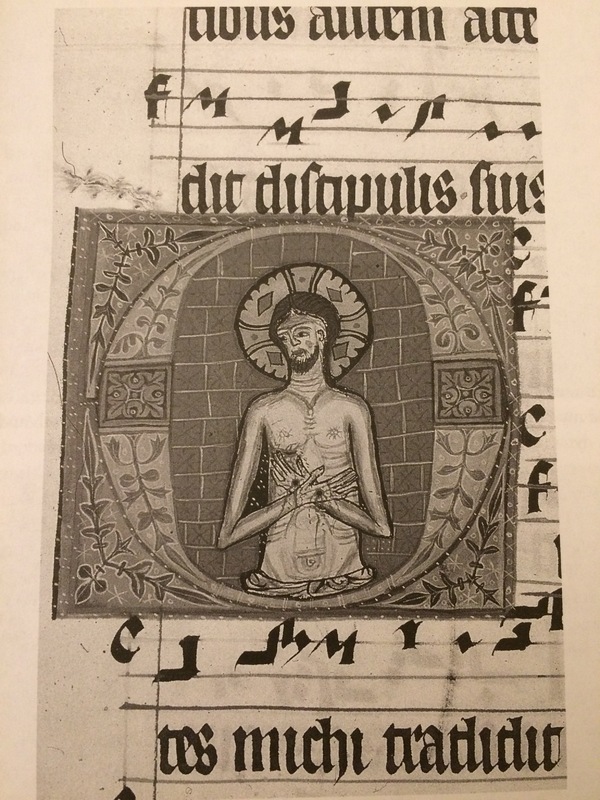 tibus autem acce
dit discipulis suis
O
tes michi tradidit